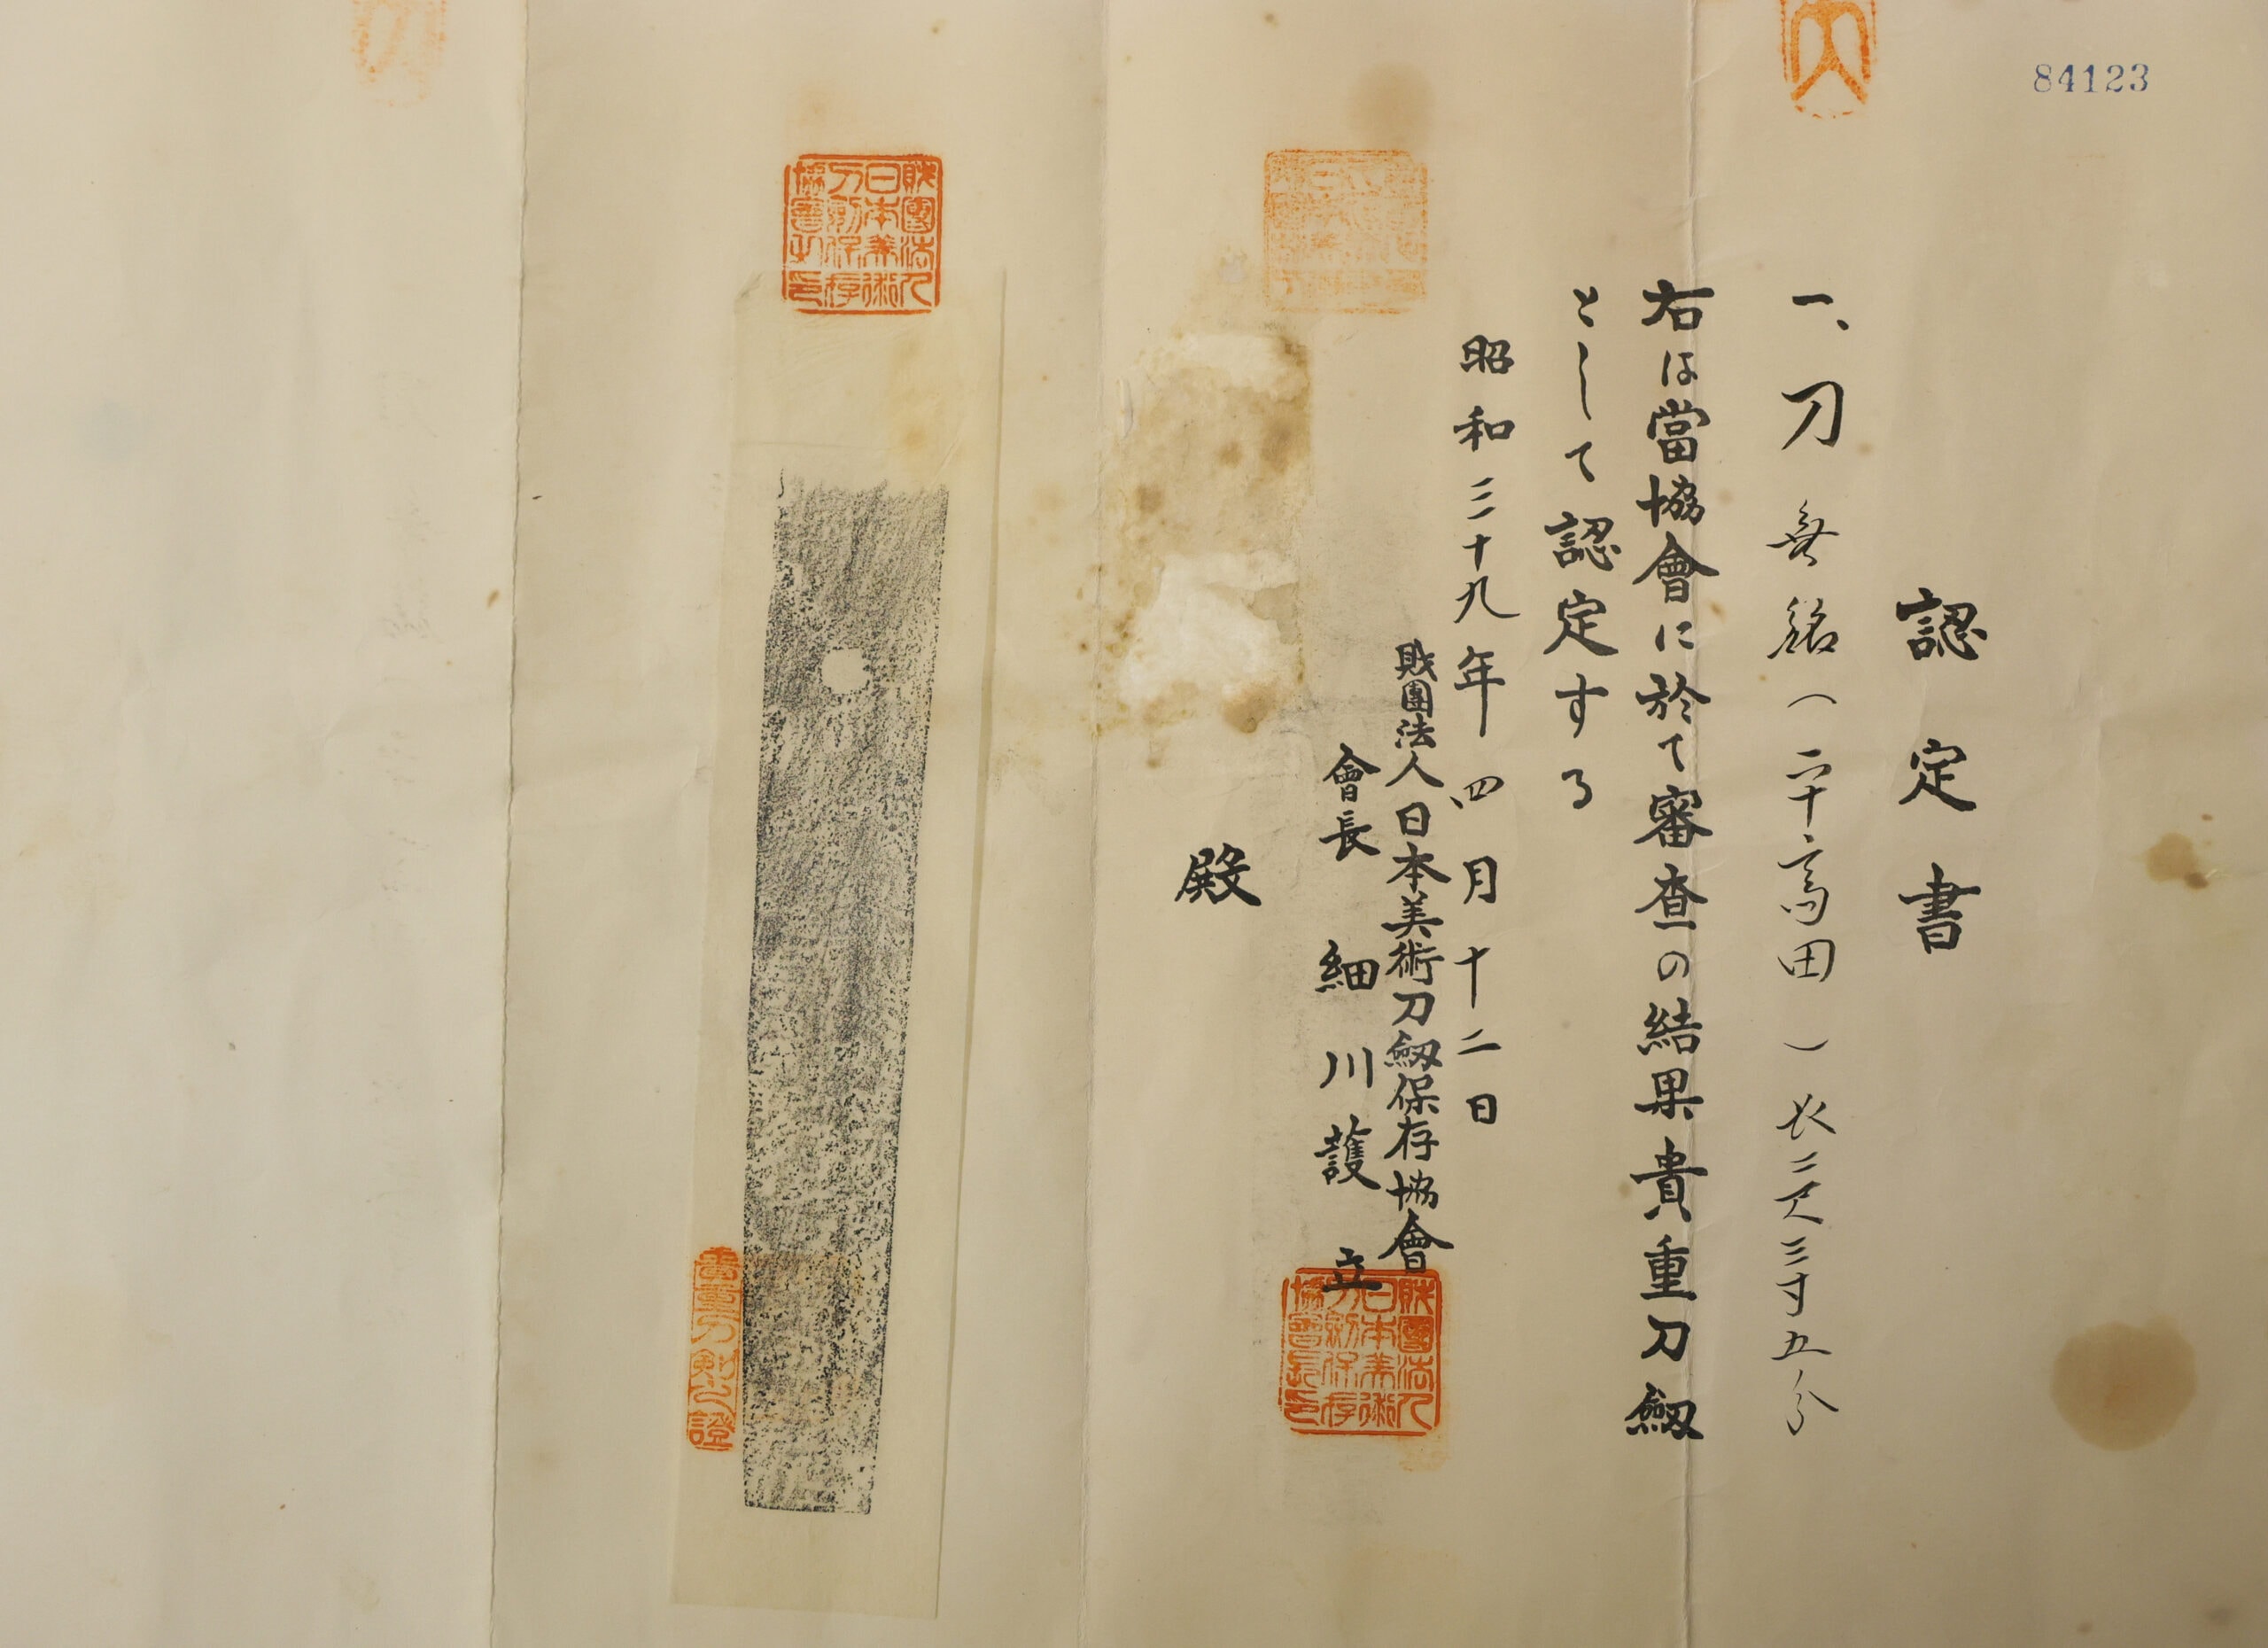 84123
認定書
一、刀 無銘(平高田)長二尺三寸五分
右は當協會に於て審査の結果貴重刀劒
として認定する
昭和三十九年四月十二日
財團法人日本美術刀劒保存協會
會長 細川護立
殿
財團法人
日本美術
刀劍保存
協會長印
財團法人
日本美術
刀劍保存
協會之印
貴重刀劍之證